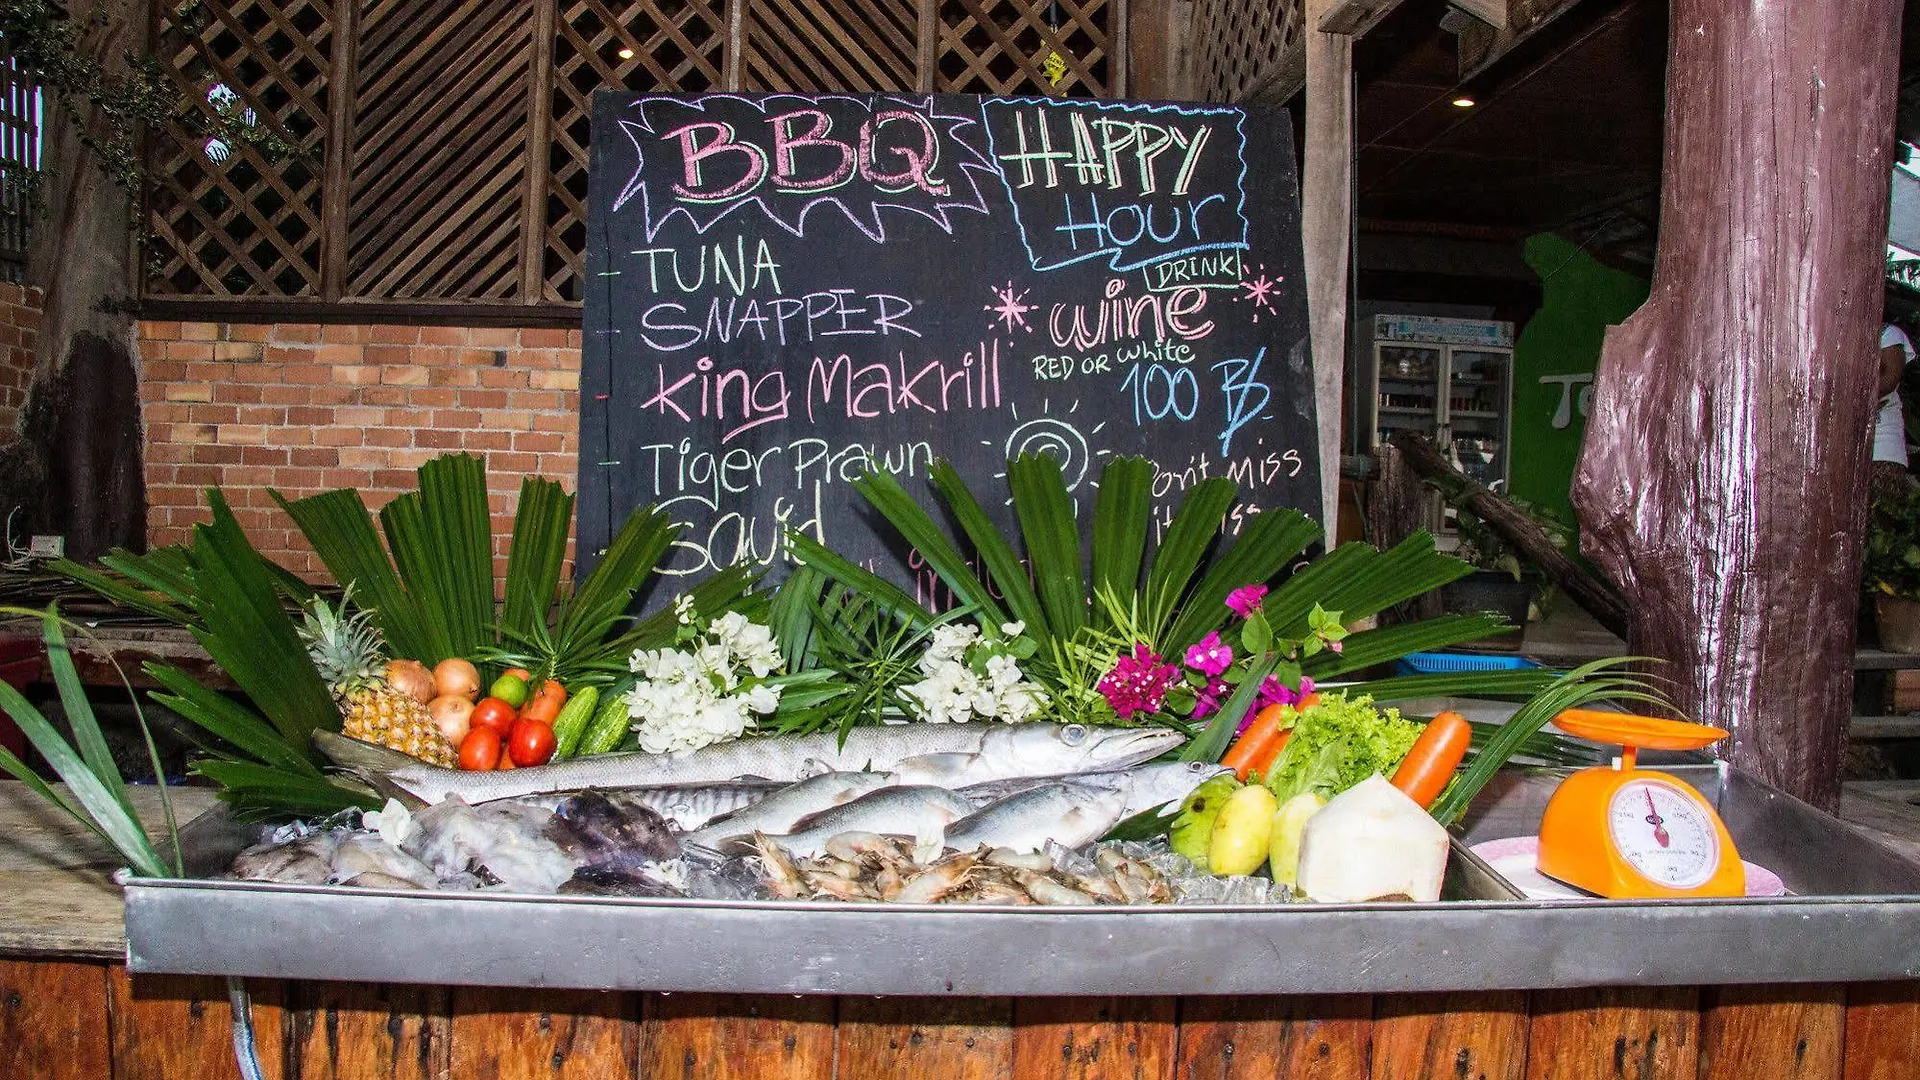 BBQ
TUNA
SNAPPER
King Makrill
Tiger Prawn
Squid
HAPPY
Hour
DRINK
wine
RED OR white
100 ฿
Don't Miss